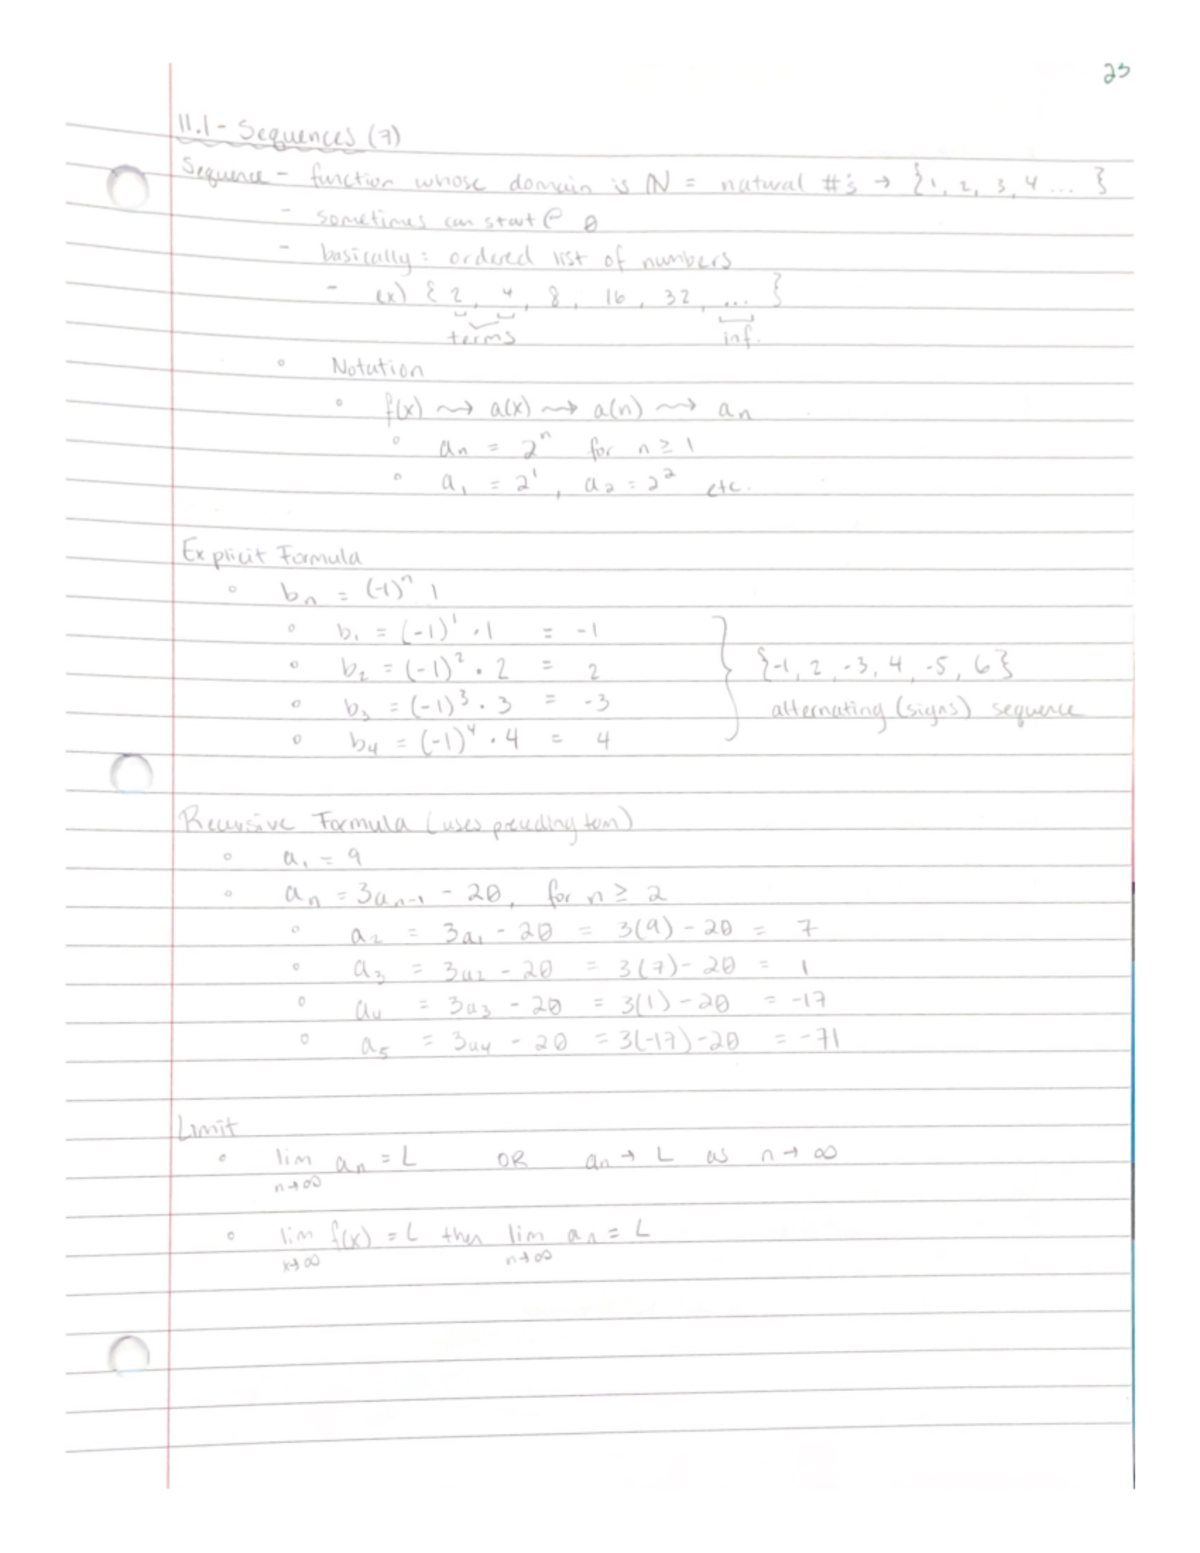 23
11.1 - Sequences (7)
Sequence - function whose domain is ℕ = natural #'s → {1, 2, 3, 4 ... }
- sometimes can start @ 0
- basically: ordered list of numbers
- ex) { 2, 4, 8, 16, 32, ... }
terms inf.
◦ Notation
◦ f(x) ⇝ a(x) ⇝ a(n) ⇝ aₙ
◦ aₙ = 2ⁿ for n ≥ 1
◦ a₁ = 2¹, a₂ = 2² etc.
Explicit Formula
◦ bₙ = (-1)ⁿ 1
◦ b₁ = (-1)¹ · 1 = -1
◦ b₂ = (-1)² · 2 = 2 {-1, 2, -3, 4, -5, 6}
◦ b₃ = (-1)³ · 3 = -3 alternating (signs) sequence
◦ b₄ = (-1)⁴ · 4 = 4
Recursive Formula (uses preceding term)
◦ a₁ = 9
◦ aₙ = 3aₙ₋₁ - 20, for n ≥ 2
◦ a₂ = 3a₁ - 20 = 3(9) - 20 = 7
◦ a₃ = 3a₂ - 20 = 3(7) - 20 = 1
◦ a₄ = 3a₃ - 20 = 3(1) - 20 = -17
◦ a₅ = 3a₄ - 20 = 3(-17) - 20 = -71
Limit
◦ lim aₙ = L OR aₙ → L as n → ∞
n→∞
◦ lim f(x) = L then lim aₙ = L
x→∞ n→∞